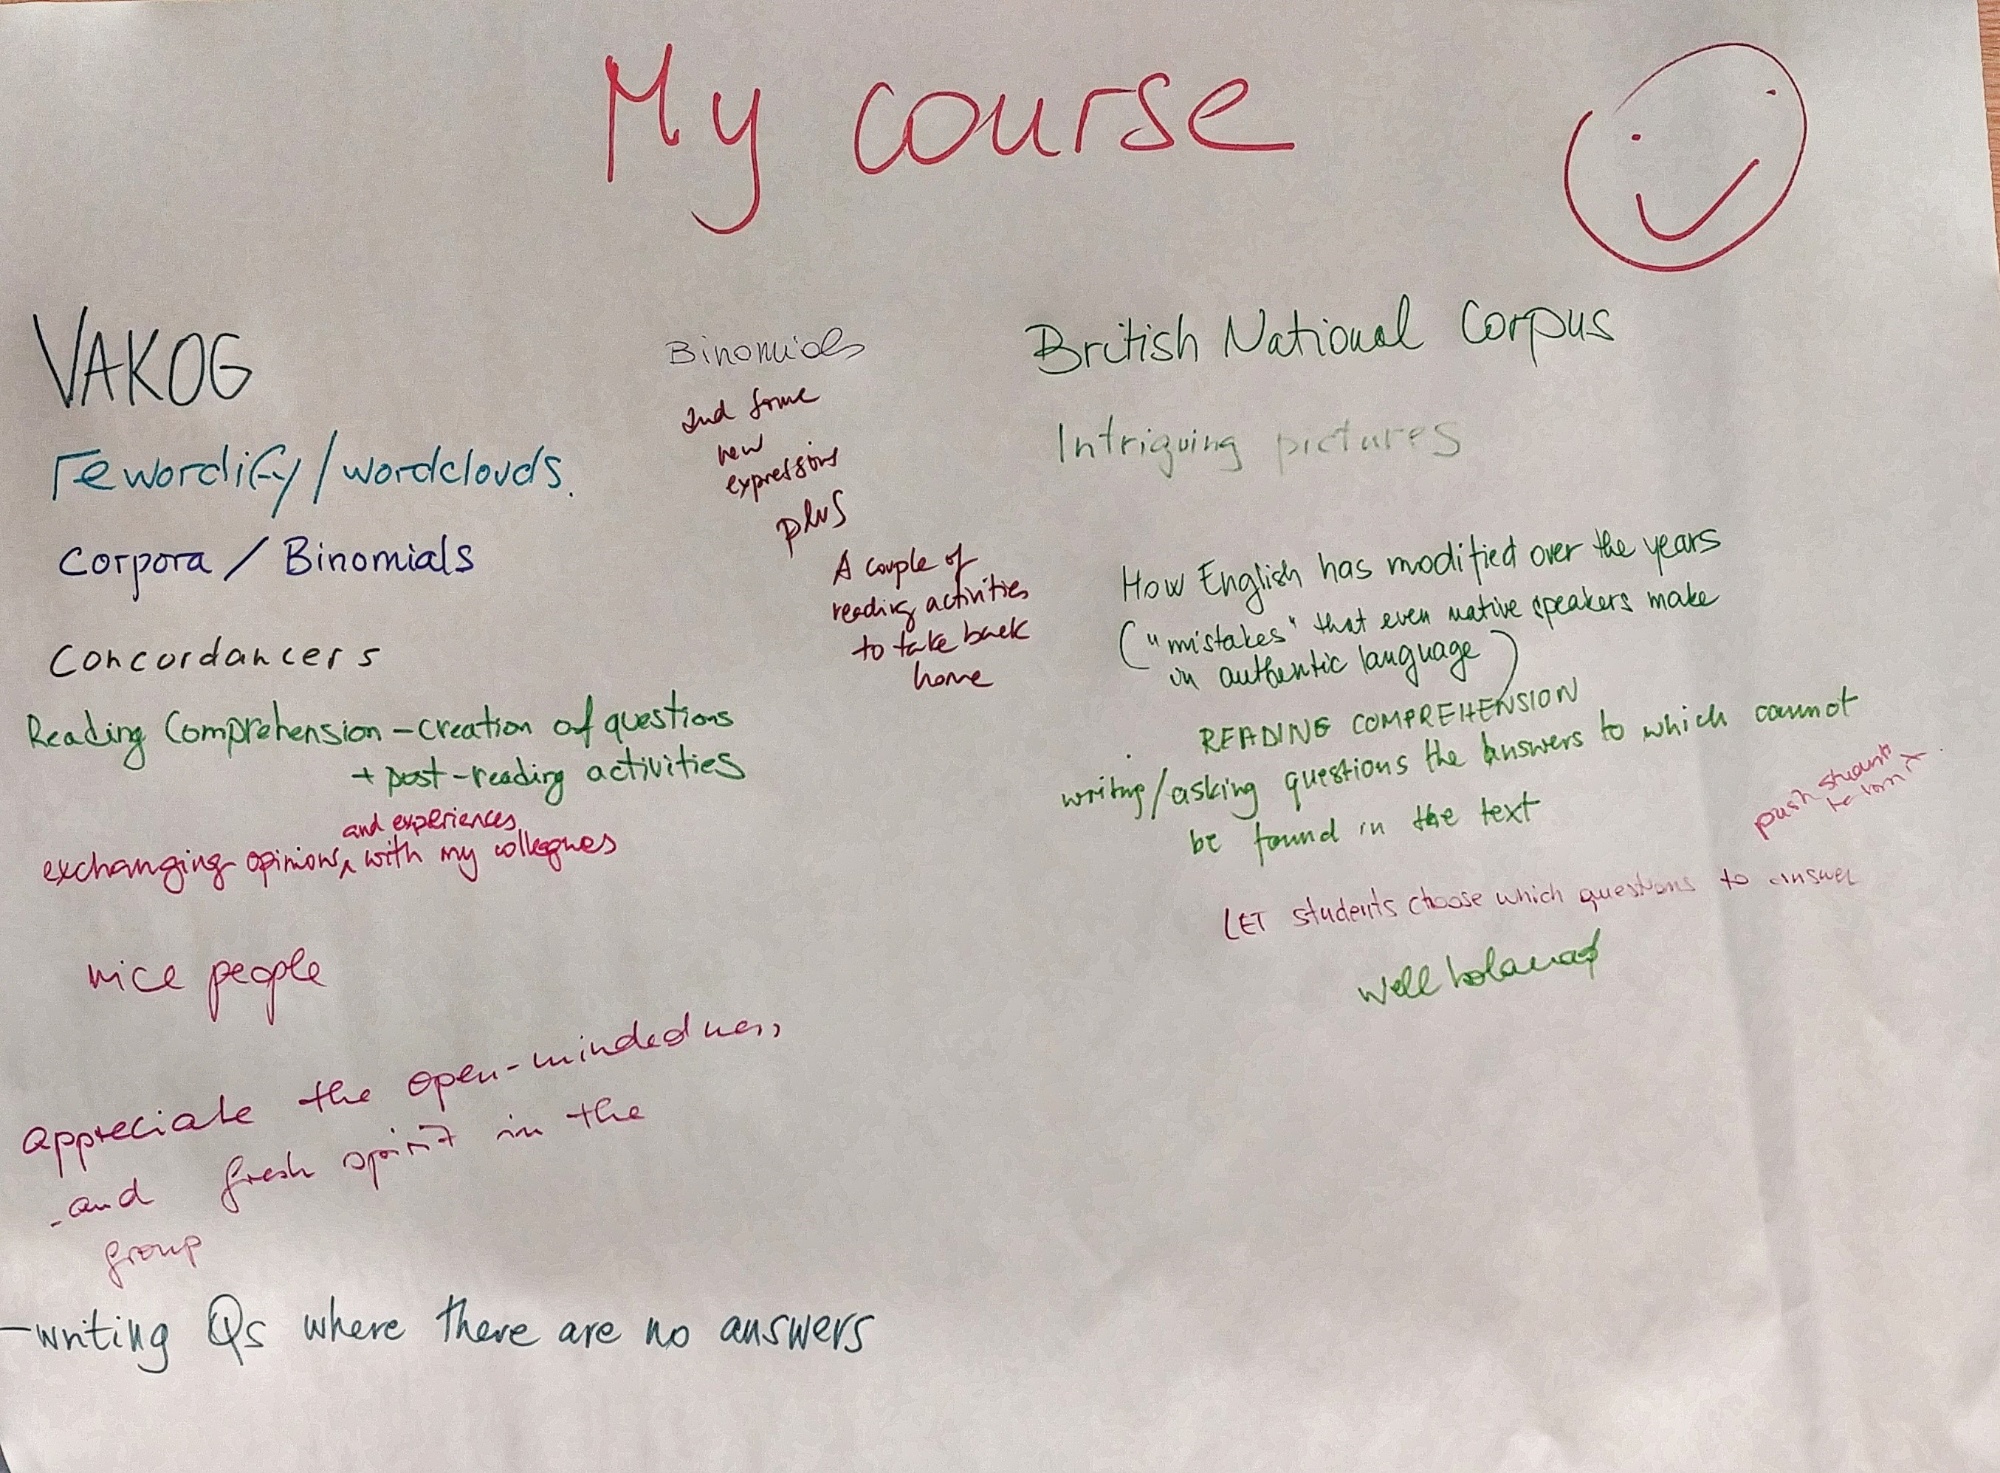 My course
VAKOG
rewordify/wordclouds.
Corpora / Binomials
Concordancers
Reading Comprehension - creation of questions
+ post-reading activities
and experiences
exchanging opinions with my colleagues
nice people
appreciate the open-mindedness
-and fresh spirit in the
group
-writing Qs where there are no answers
Binomials
and some
new
expressions
plus
A couple of
reading activities
to take back
home
British National Corpus
Intriguing pictures
How English has modified over the years
("mistakes" that even native speakers make
in authentic language)
READING COMPREHENSION
writing/asking questions the answers to which cannot
be found in the text
push students
to
LET students choose which questions to answer
well balanced